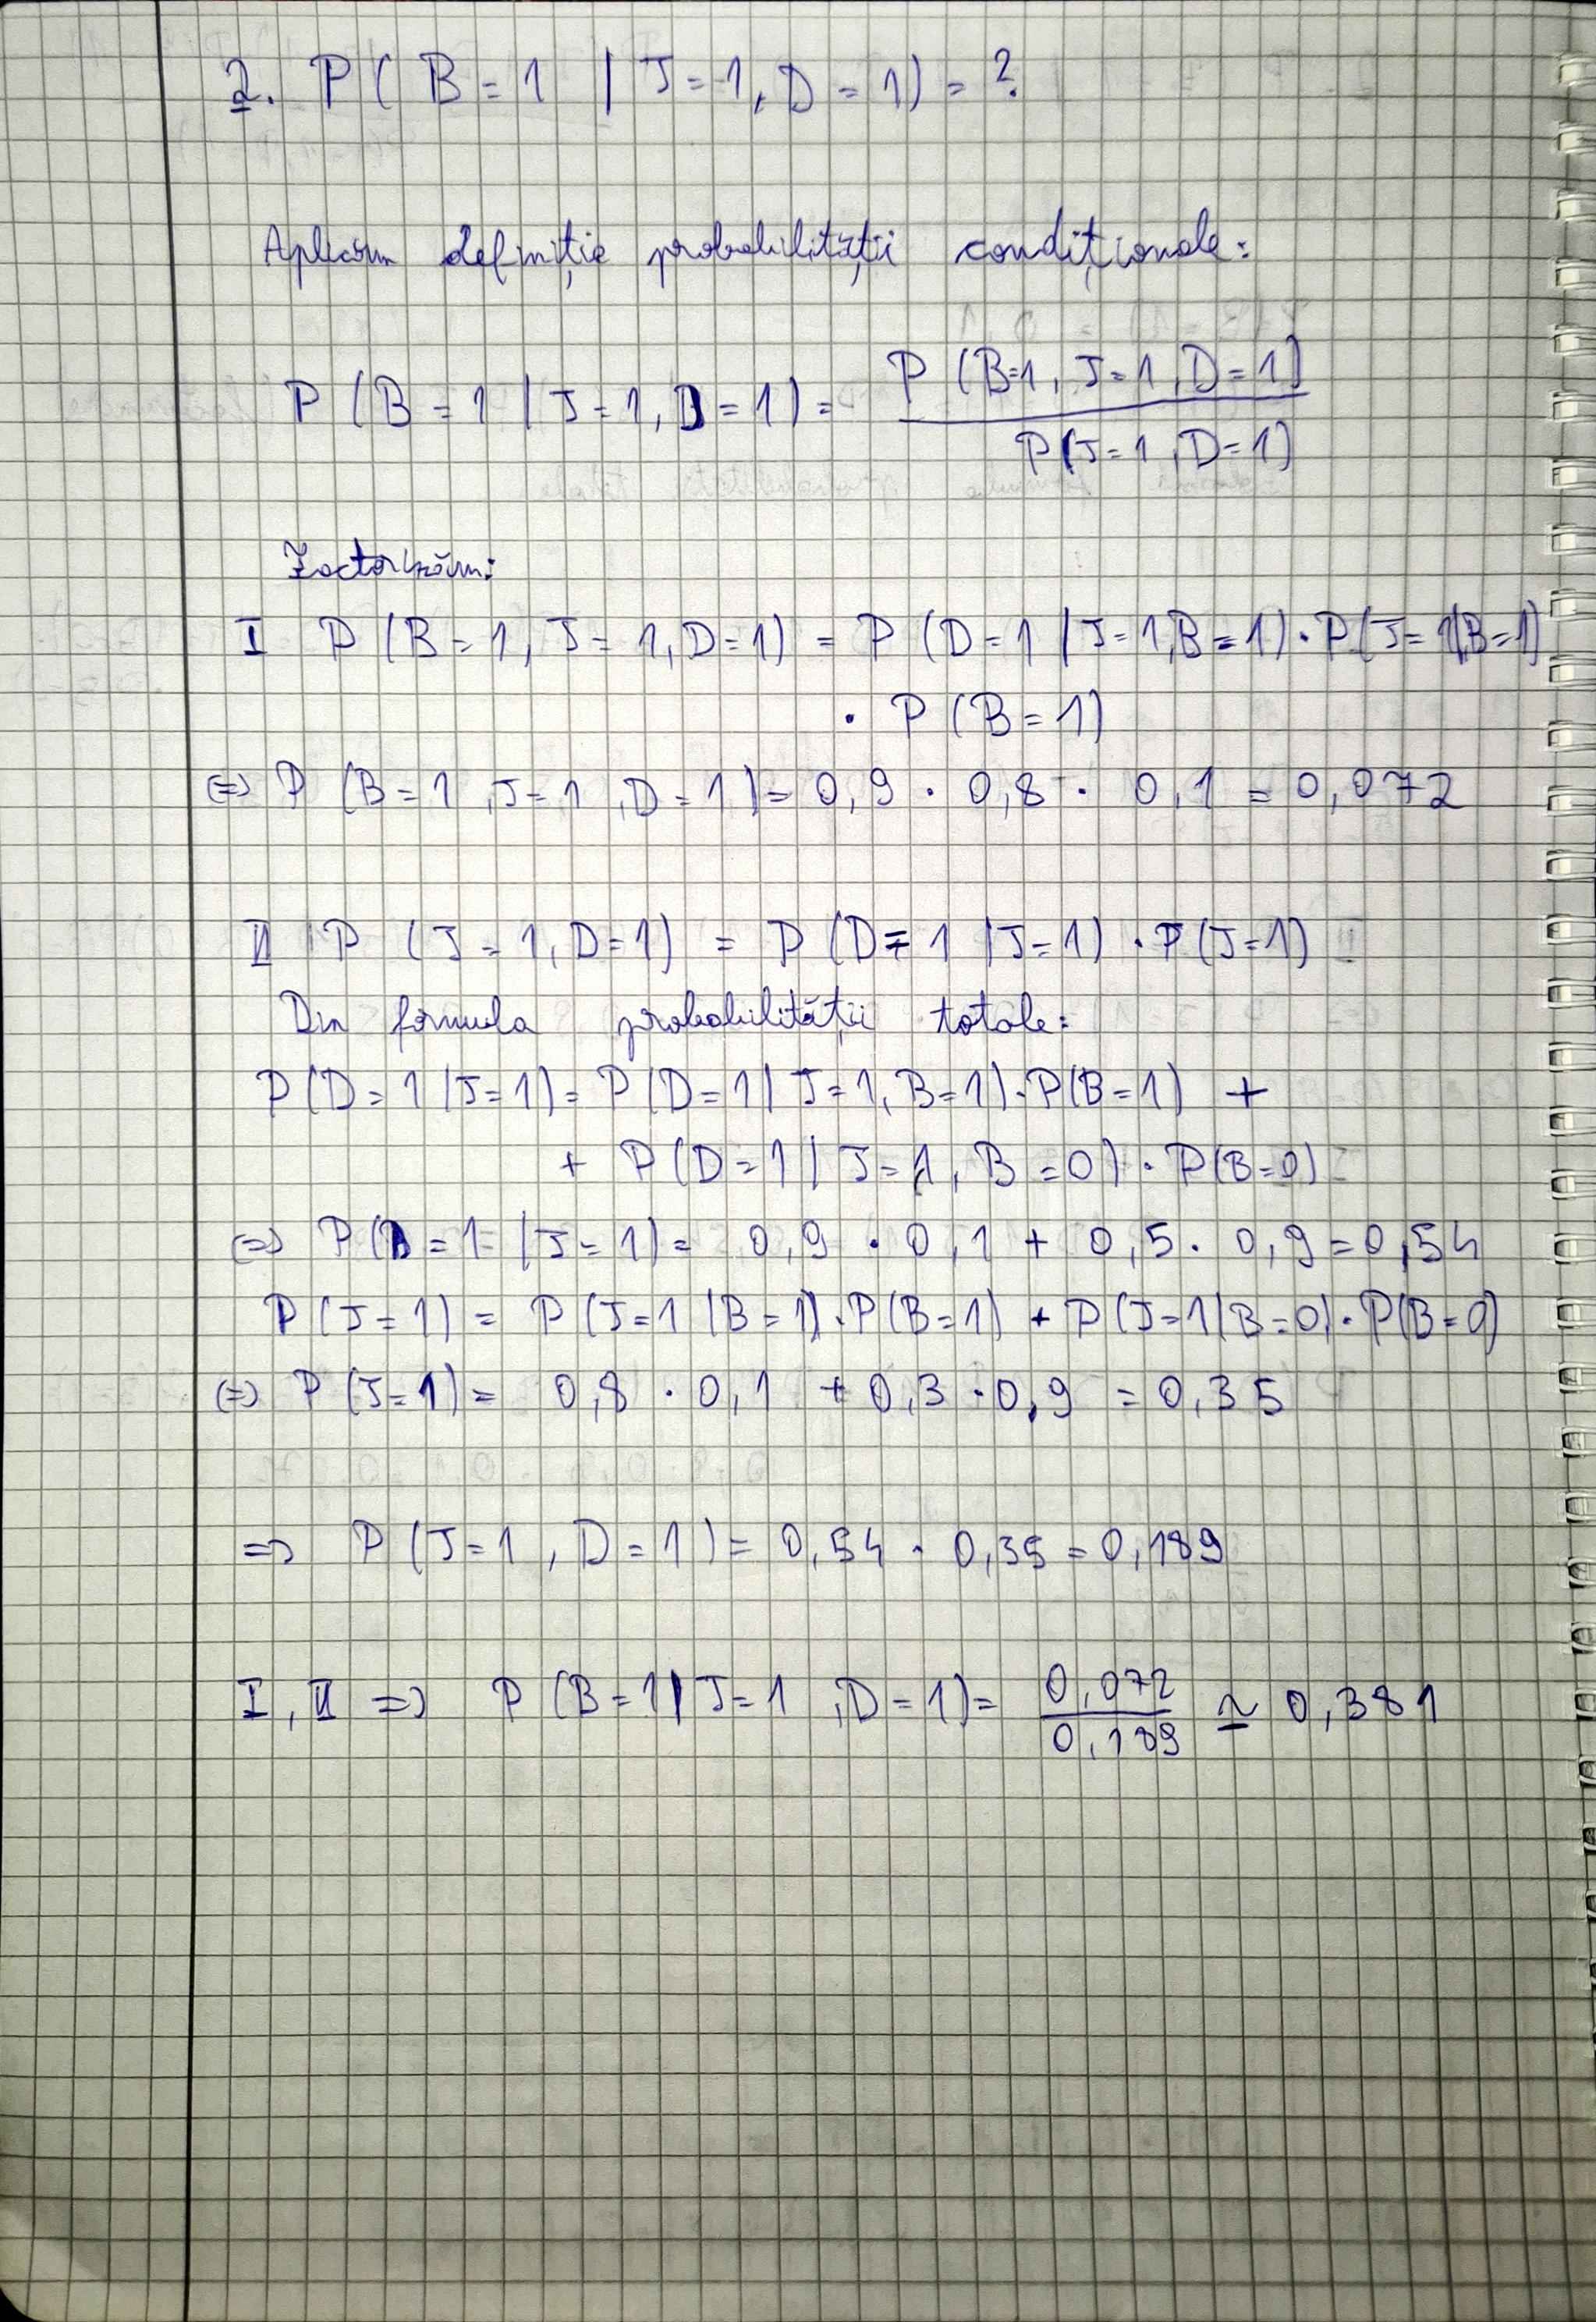 2. P(B=1 | J=1, D=1) = ?
Aplicăm definiție probabilității condiționale:
P(B=1 | J=1, D=1) = P(B=1, J=1, D=1) / P(J=1, D=1)
Factorizăm:
I P(B=1, J=1, D=1) = P(D=1 | J=1, B=1) · P(J=1 | B=1)
· P(B=1)
(=) P(B=1, J=1, D=1) = 0,9 · 0,8 · 0,1 = 0,072
II P(J=1, D=1) = P(D=1 | J=1) · P(J=1)
Din formula probabilității totale:
P(D=1 | J=1) = P(D=1 | J=1, B=1) · P(B=1) +
+ P(D=1 | J=1, B=0) · P(B=0)
(=) P(D=1 | J=1) = 0,9 · 0,1 + 0,5 · 0,9 = 0,54
P(J=1) = P(J=1 | B=1) · P(B=1) + P(J=1 | B=0) · P(B=0)
(=) P(J=1) = 0,8 · 0,1 + 0,3 · 0,9 = 0,35
=> P(J=1, D=1) = 0,54 · 0,35 = 0,189
I, II => P(B=1 | J=1, D=1) = 0,072 / 0,189 ≃ 0,381